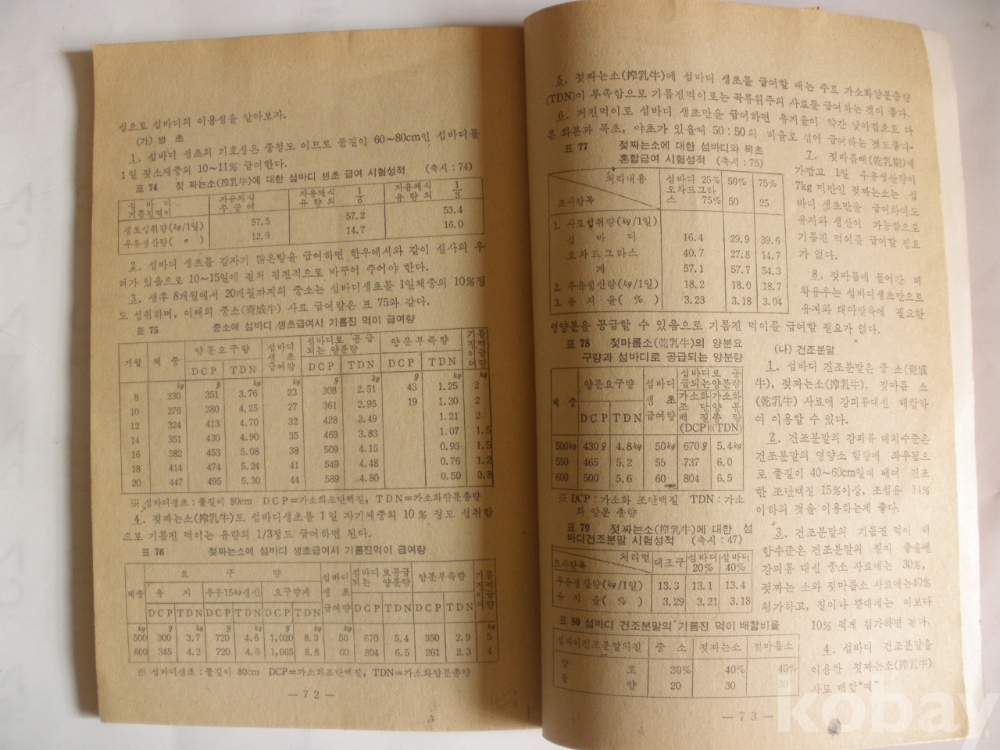 심으로 섬바디의 이용성을 알아보자.
(가) 생 초
1. 섬바디 생초의 기호성은 중정도 이므로 풀길이 60~80cm인 섬바디를
1일 젖소체중의 10~11% 급여한다.
표 74 젖 짜는소(搾乳牛)에 대한 섬바디 생초 급여 시험성적 (축시 : 74)
섬 바 디 기름진먹이 자유채식 무급여 자유채식 유량의 1/6 자유채식 유량의 1/8
생초섭취량(kg/1일) 57.5 57.2 53.4
우유생산량( 〃 ) 12.9 14.7 16.0
2. 섬바디 생초를 갑자기 많은량을 급여하면 한우에서와 같이 설사의 우
려가 있음으로 10~15일에 걸쳐 점진적으로 바꾸어 주어야 한다.
3. 생후 8개월에서 20개월까지의 중소는 섬바디생초를 1일체중의 10%정
도 섭취하며, 이때의 중소(育成牛) 사료 급여량은 표 75와 같다.
표 75 중소에 섬바디 생초급여시 기름진 먹이 급여량
개월 체 중 양분요구량 섬바디 생 초 급여량 섬바디로 공급 되는 양분량 양분부족량
DCP TDN DCP TDN DCP TDN
kg g kg kg g kg g kg kg
8 230 351 3.76 23 308 2.51 43 1.25 2
10 276 380 4.25 27 361 2.95 19 1.30 2
12 324 413 4.70 32 428 3.49 1.21 2
14 351 430 4.90 35 469 3.83 1.07 1.5
16 382 453 5.08 38 509 4.15 0.93 1.5
18 414 474 5.24 41 549 4.48 0.76 1.2
20 447 495 5.30 44 589 4.80 0.50 0.8
※ 섬바디생초 : 풀길이 80cm DCP=가소화조단백질, TDN=가소화양분총량
4. 젖짜는소(搾乳牛)도 섬바디생초를 1일 자기체중의 10% 정도 섭취함
으로 기름진 먹이는 유량의 1/3정도 급여하면 된다.
표 76 젖짜는소에 섬바디 생초급여시 기름진먹이 급여량
체중 요 구 량 섬바디 생 초 급여량 섬바디로공급 되는 양분량 양분부족량
유 지 우유15kg생산 요구량계
DCP TDN DCP TDN DCP TDN DCP TDN DCP TDN
kg g kg g kg g kg kg g kg g kg kg
500 300 3.7 720 4.6 1,020 8.3 50 670 5.4 350 2.9 5
600 345 4.2 720 4.6 1,065 8.8 60 804 6.5 261 2.3 4
※ 섬바디생초 : 풀길이 80cm DCP=가소화조단백질, TDN=가소화양분총량
— 7 2 —
5. 젖짜는소(搾乳牛)에 섬바디 생초를 급여할 때는 주로 가소화양분총량
(TDN)이 부족함으로 기름진먹이로는 곡류위주의 사료를 급여하는 것이 좋다.
6. 거친먹이로 섬바디 생초만을 급여하면 유지율이 약간 낮아짐으로 다
른 화본과 목초, 야초가 있을때 50 : 50의 비율로 섞어 급여하는 것도좋다.
표 77 젖짜는소에 대한 섬바디와 목초
혼합급여 시험성적 (축시 : 75)
처리내용 섬바디 25% 50% 75%
조사항목 오차드그라스 75% 50 25
1. 사료섭취량(kg/1일)
섬 바 디 16.4 29.9 39.6
오차드그라스 40.7 27.8 14.7
계 57.1 57.7 54.3
2. 우유생산량(kg/1일) 18.2 18.0 18.7
3. 유 지 율 ( % ) 3.23 3.18 3.04
7. 젖마름때(乾乳期)에
가깝고 1일 우유생산량이
7kg 미만인 젖짜는소는 섬
바디 생초만을 급여하여도
유지와 생산이 가능함으로
기름진 먹이를 급여할 필요
가 없다.
8. 젖마름에 들어간 비
착유우는 섬바디생초만으로
유지와 태아발육에 필요한
영양분을 공급할 수 있음으로 기름진 먹이를 급여할 필요가 없다.
표 78 젖마름소(乾乳牛)의 양분요
구량과 섬바디로 공급되는 양분량
체 중 양분요구량 섬바디 생 초 급여량 섬바디로 공 급되는양분량
DCP TDN 가소화 조 단 백 질 (DCP) 가소화 양 분 총 량 (TDN)
500kg 430g 4.8kg 50kg 670g 5.4kg
550 465 5.2 55 737 6.0
600 500 5.6 60 804 6.5
※ DCP : 가소화 조단백질 TDN : 가소
화 양분 총량
표 79 젖짜는소(搾乳牛)에 대한 섬
바디건조분말 시험성적 (축시 : 47)
처리별 조사항목 대조구 섬바디 20% 섬바디 40%
우유생산량(kg/1일) 13.3 13.1 13.4
유 지 율 ( % ) 3.29 3.21 3.18
표 80 섬바디 건조분말의 기름진 먹이 배합비율
섬바디건조분말의질 중 소 젖짜는소 젖마름소
양 호 30% 40% 40%
불 량 20 30 30
(나) 건조분말
1. 섬바디 건조분말은 중 소(育成
牛), 젖짜는소(搾乳牛), 젖마름 소
(乾乳牛) 사료에 강피류대신 배합하
여 이용할 수 있다.
2. 건조분말의 강피류 대치수준은
건조분말의 영양소 함량에 좌우됨으
로 풀길이 40~60cm일때 베어 건조
한 조단백질 15%이상, 조섬유
이하의 것을 이용하는게 좋다.
3. 건조분말의 기름진 먹이 배
합수준은 건조분말의 질이 좋을때
강피류 대신 중소 사료에는 30%,
젖짜는 소와 젖마름소 사료에는40%
첨가하고, 질이나 쁠때에는 이보다
10% 적게 첨가하면 된다.
4. 섬바디 건조분말을
이용한 젖짜는소(搾乳牛)
사료 배합"예"
— 7 3 —
kobay